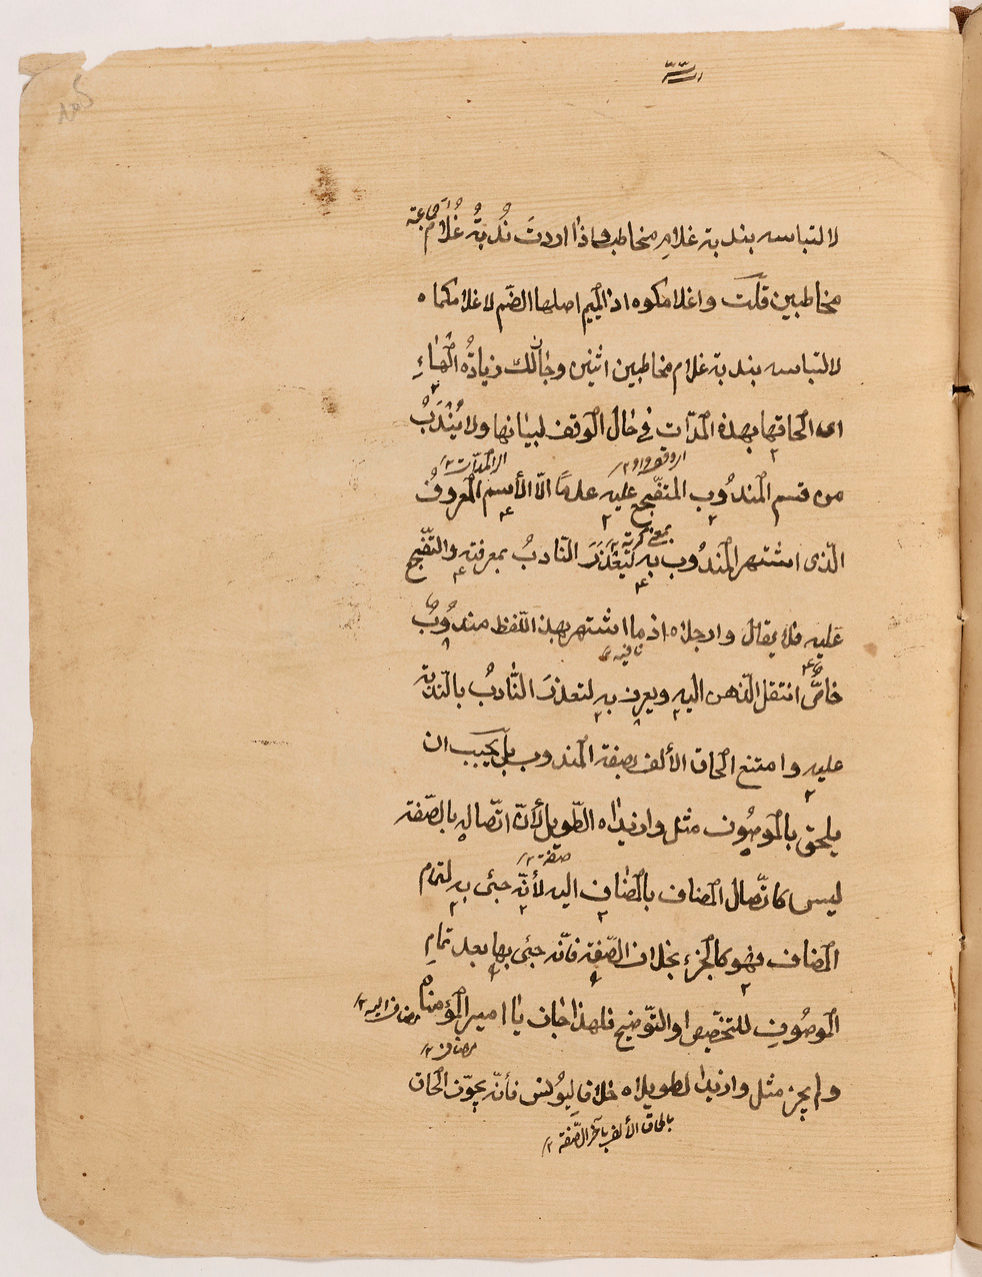 لالتباسه بندبة غلامِ مخاطب فاذا اردتَ نُدبةُ غُلامُ جماعة
مخاطبين قلت واغلامكوه اذ الميم اصلها الضم لا غلامكماه
لالتباسه بندبة غلام مخاطبين اثنين وجاز لك زيادةُ الهاءِ
اى الحاقها بهذه المدّات فى حال الوقف لبيانها ولا يُنْدَبُ
او قوله واو ٢ اى المدّات ٢
من قسم المندُوب المتفجّع عليه عدماً الّا الأسم المعروفُ
الّذى اشتهر المندُوب به لتعذر النّادبُ بمعرفته والتّفجع
عليه فلا يقال وارجلاه اذ ما اشتهر بهذ اللّفظ مندوُبُ
نافيه
خاصّ انتقل الذهن اليه ويعرف به لتعذر النّادبُ بالنّدبة
عليه وامتنع الحاق الألف بصفة المندوب بل يجب ان
يلحق بالموصُوف مثل وازيداه الطّويل لأنّ اتّصاله بالصّفة
صفة ٢
ليس كاتّصال المضاف بالمضاف اليه لأنّه جئى به لتمام
المضاف فهو كالجزء بخلاف الصّفة فانّه جئى بها بعد تمامِ
الموصُوفِ للتخصيص او التّوضيح فلهذا جاز يا امير المؤمناه
مضاف اليه ٢
مضاف ٢
ولم يجز مثل وازيد الطويلاه خلافا ليوُنس فأنّه يجوّز الحاق
بالحاق الألف باخر الصّفة ٢